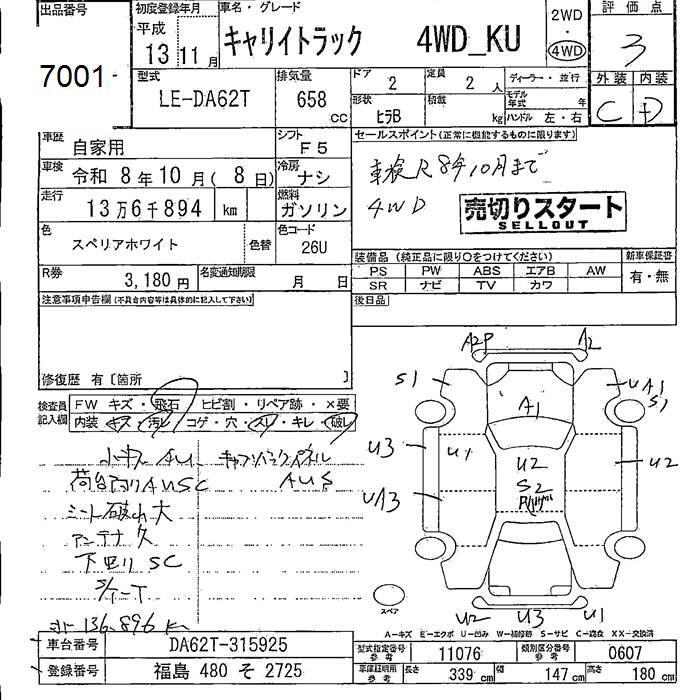 出品番号 初度登録年月 車名・グレード 2WD 評価点
平成 13 11月 キャリイトラック 4WD_KU 4WD 3
7001 型式 排気量 ドア 2 定員 2人 ディーラー・並行 外装 内装
LE-DA62T 658 CC 形状 ヒラB 積載 kg モデル年式 年 ハンドル 左・右 C D
車歴 自家用 シフト F5 セールスポイント(正常に機能するものに限ります)
車検 令和 8年 10月 ( 8日) 冷房 ナシ 車検R8年10月まで
走行 13万6千894 km 燃料 ガソリン 4WD 売切りスタート
SELLOUT
色 スペリアホワイト 色替 色コード 26U
装備品(純正品に限り○をつけてください) 新車保証書
R券 3,180円 名変通知期限 月 日 PS PW ABS エアB AW 有・無
SR ナビ TV カワ
注意事項申告欄(不具合内容等は具体的に記入して下さい) 後日品
修復歴 有〔箇所 〕
検査員記入欄 FW キズ・飛石 ヒビ割・リペア跡・×要
内装 キズ・汚レ コゲ・穴・スレ・キレ・破レ
AU キャブバックパネル
荷台内リAUSC AUS
シート破れ大
アンテナ欠
下回リSC
136,896
A2P A2
S1 A1 UA1 S1
U3 U1 U2 U2
S2
UA3
スペア U2 U3 U1
A-キズ E-エクボ U-凹み W-補修跡 S-サビ C-腐食 XX-交換済
車台番号 DA62T-315925 型式指定番号 参考 11076 類別区分番号 参考 0607
登録番号 福島 480 そ 2725 車庫証明用 参考 長さ 339cm 幅 147cm 高さ 180cm